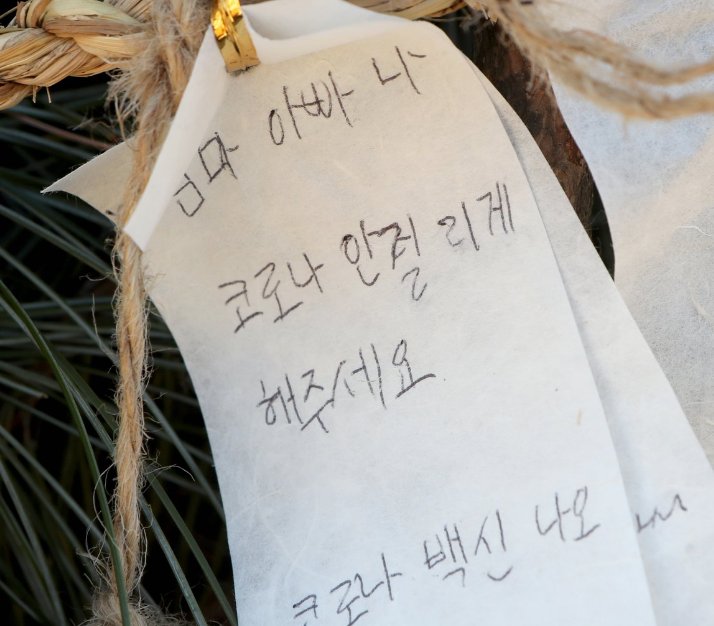 엄마 아빠 나
코로나 안걸리게
해주세요
코로나 백신 나오